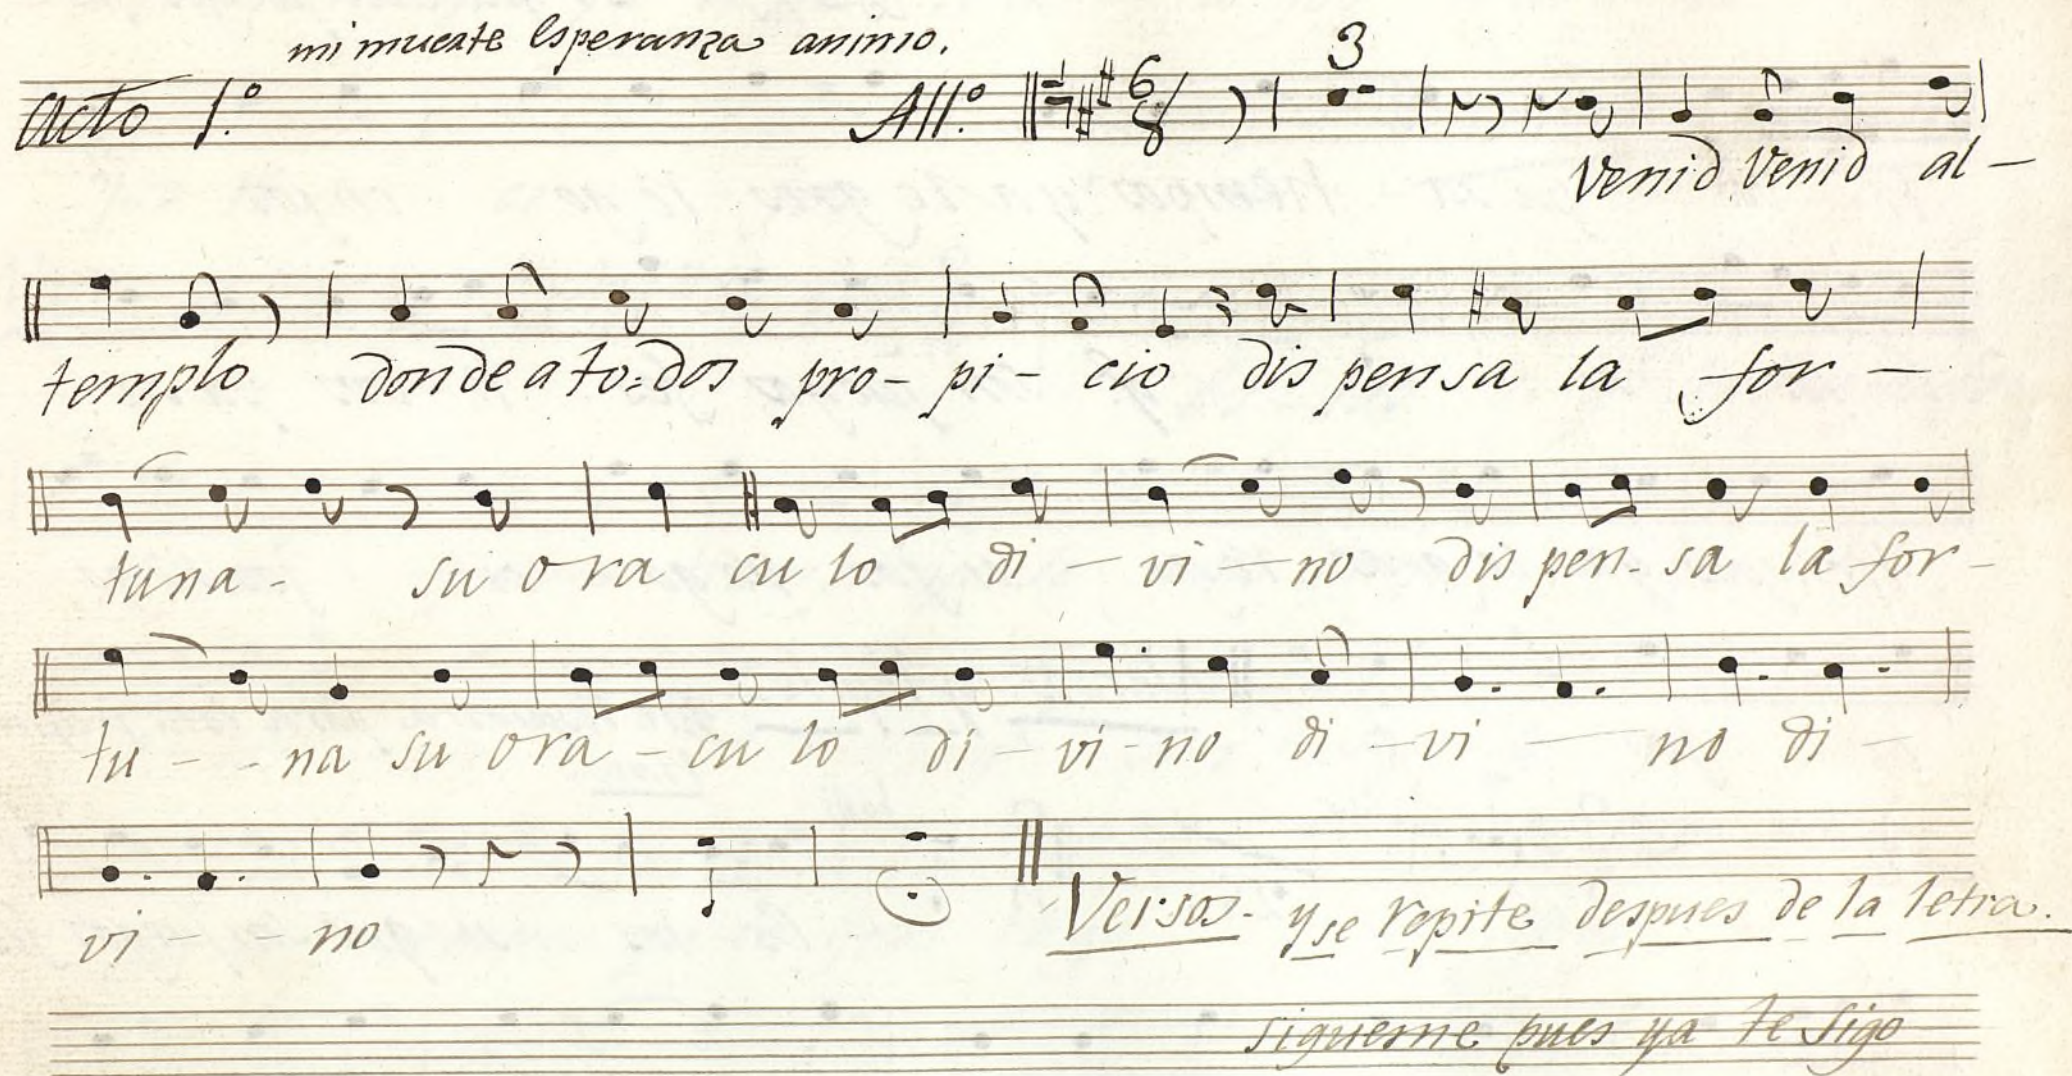 mi muerte Esperanza animo.
Acto 1.º All.º 6/8 3
Venid Venid al-
templo donde a to=dos pro- pi- cio dis pensa la for-
tuna- su o ra cu lo di- vi- no dis pen- sa la for-
tu- - na su ora- cu lo di- vi- no di- vi- no di-
vi- - no
Versos. y se repite despues de la letra.
sigueme pues ya te sigo